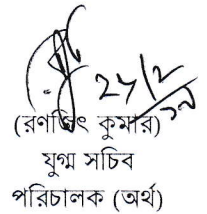 ২৮/২/১৯
(রণজিৎ কুমার)
যুগ্ম সচিব
পরিচালক (অর্থ)